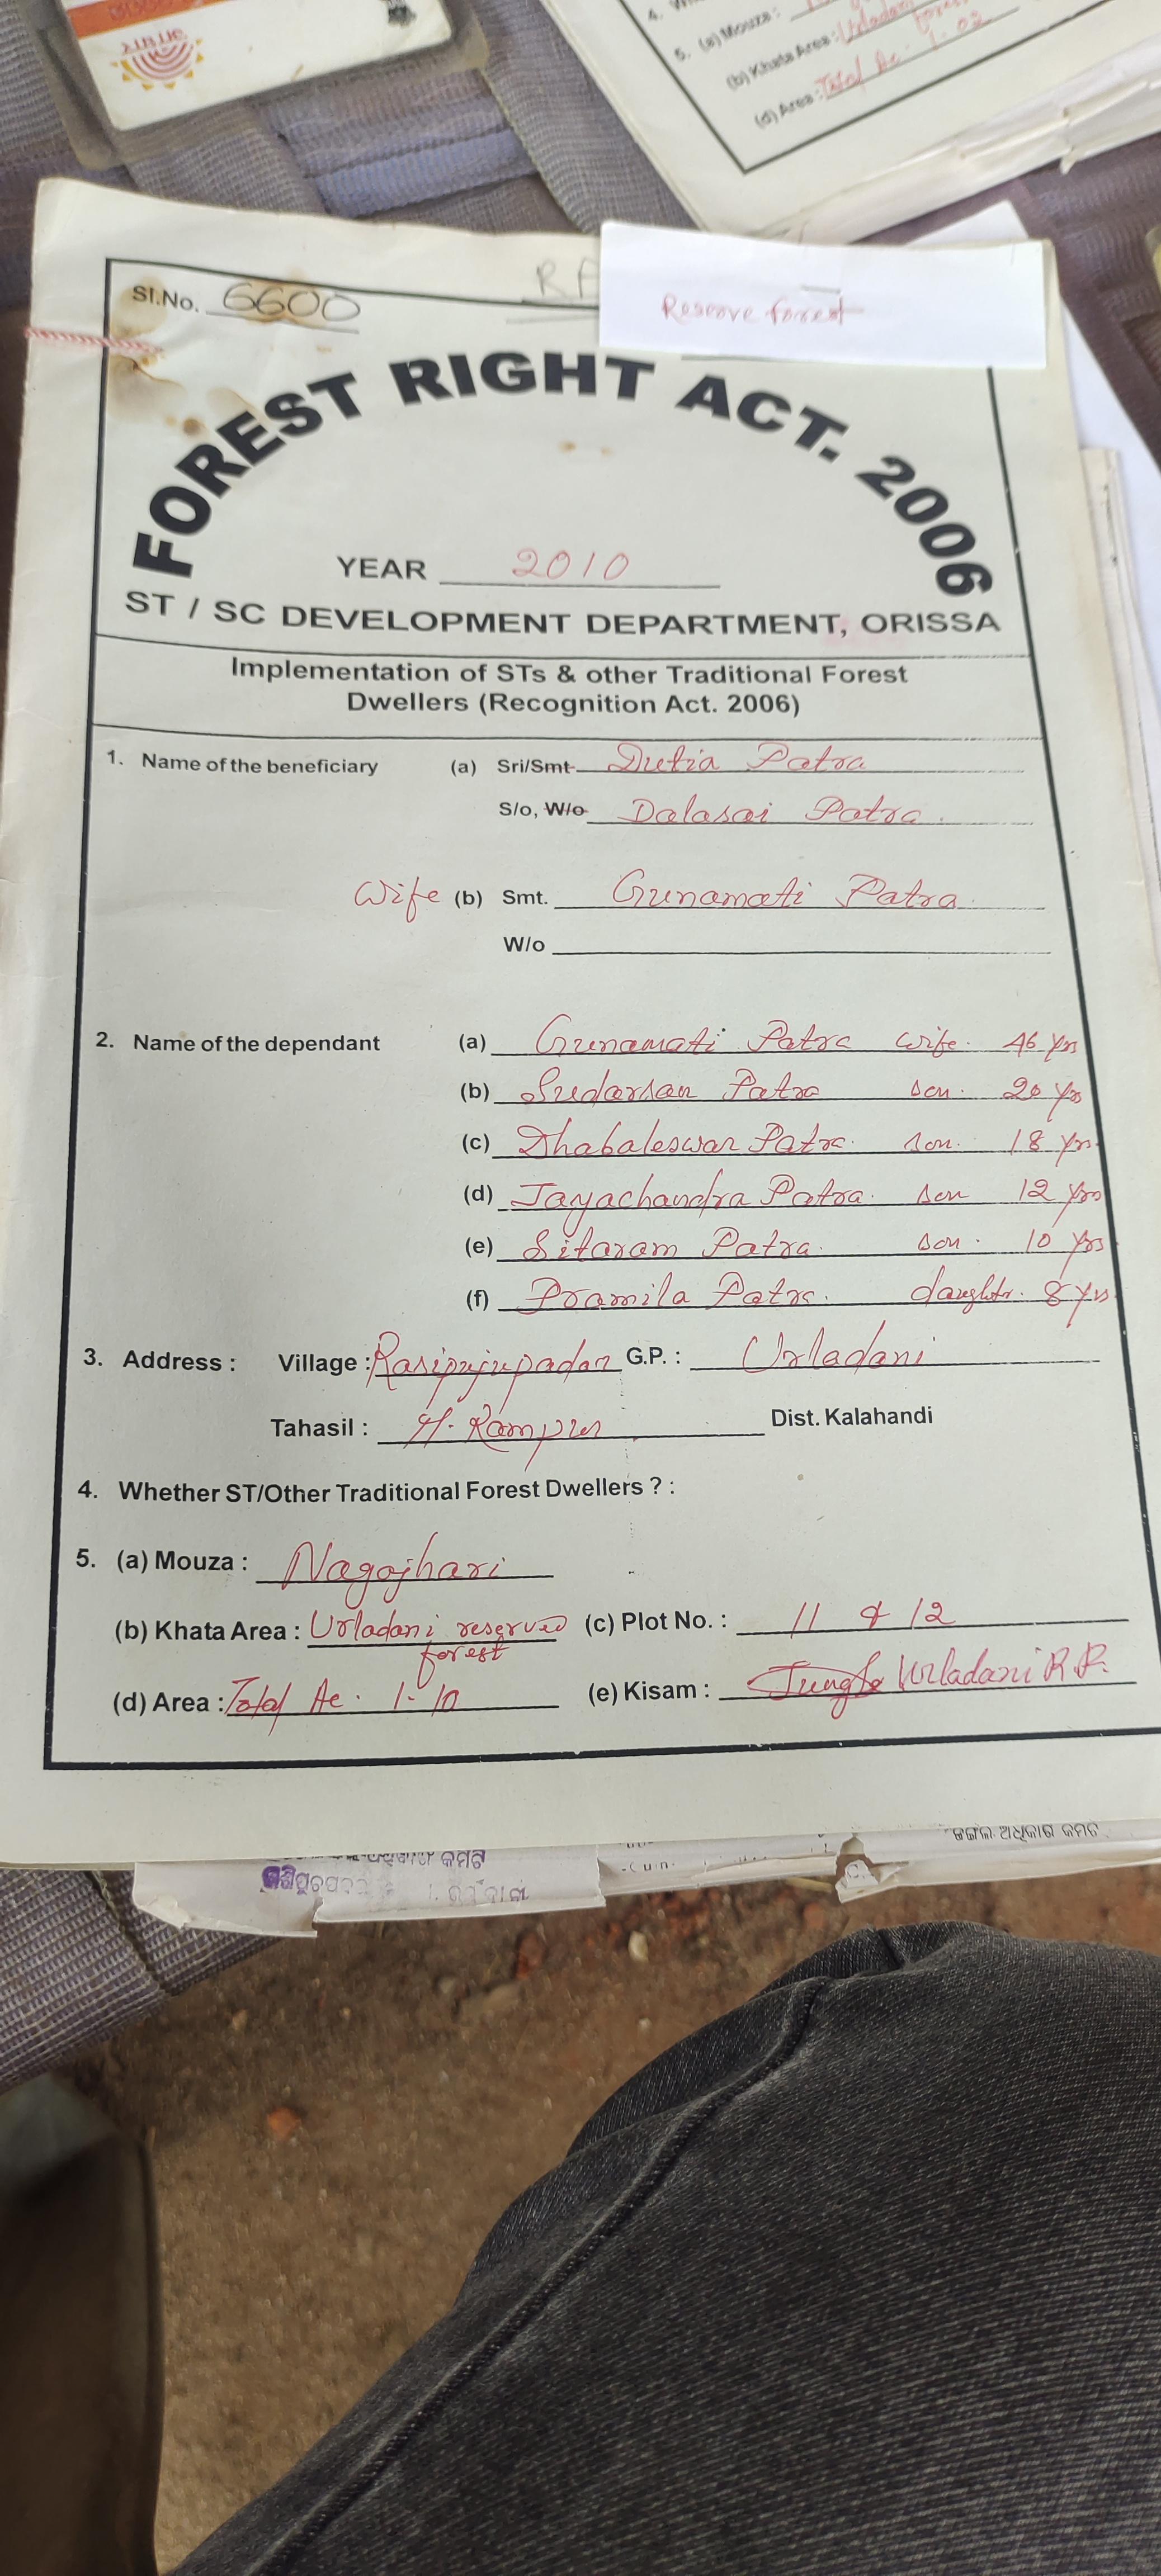 5. (a) Mouza :
(b) Khata Area : Urladani forest
(d) Area : Total Ac. 1.02
Sl.No. 6600
Reserve forest
FOREST RIGHT ACT. 2006
YEAR 2010
ST / SC DEVELOPMENT DEPARTMENT, ORISSA
Implementation of STs & other Traditional Forest
Dwellers (Recognition Act. 2006)
1. Name of the beneficiary (a) Sri/Smt. Dutia Patra
S/o, W/o Dalasai Patra.
Wife (b) Smt. Gunamati Patra
W/o
2. Name of the dependant (a) Gunamati Patra wife. 46 yrs
(b) Sudarsan Patra son. 20 yrs
(c) Dhabaleswar Patra. son. 18 yrs
(d) Jayachandra Patra. son 12 yrs
(e) Sitaram Patra. son. 10 yrs
(f) Pramila Patra. daughtr. 8 yrs
3. Address : Village : G.P. : Urladani
Tahasil : Rampur Dist. Kalahandi
4. Whether ST/Other Traditional Forest Dwellers ? :
5. (a) Mouza : Nagajhari
(b) Khata Area : Urladani reserved (c) Plot No. : 11 & 12
forest
(d) Area : Total Ac. 1.10 (e) Kisam : Jungle Urladani R.F.
ଜଙ୍ଗଲ ଅଧିକାର କମିଟି
କମିଟି